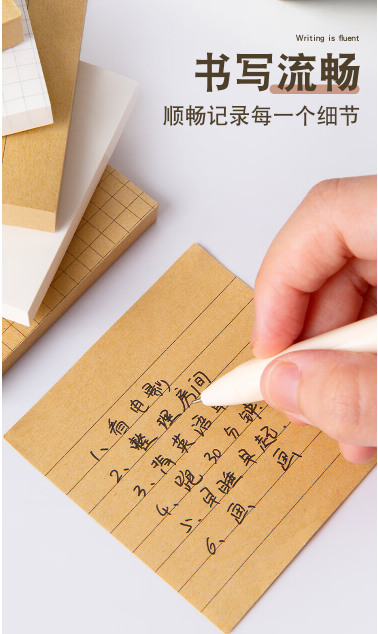 Writing is fluent
书写流畅
顺畅记录每一个细节
1、看电影
2、整理房间
3、背英语单
4、跑30分钟
5、早睡早起
6、画画